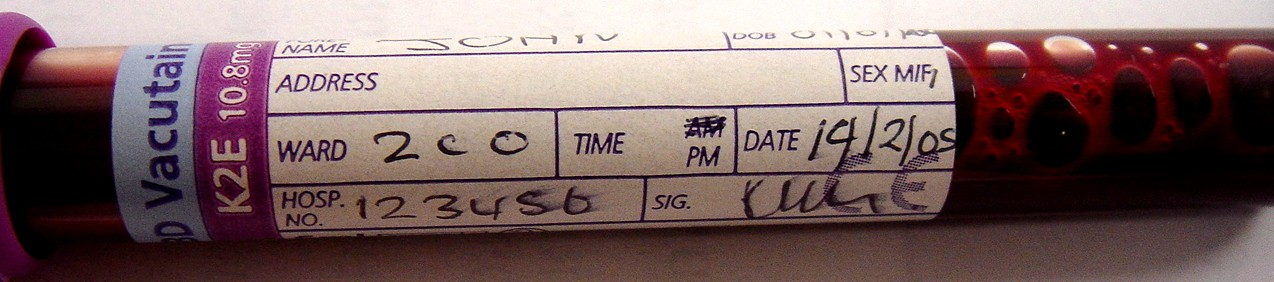 BD Vacutain
K2E 10.8mg
NAME JOHN DOB
ADDRESS
SEX M/F
WARD 2CO
TIME AM PM
DATE 14/2/05
HOSP. NO. 123456
SIG.